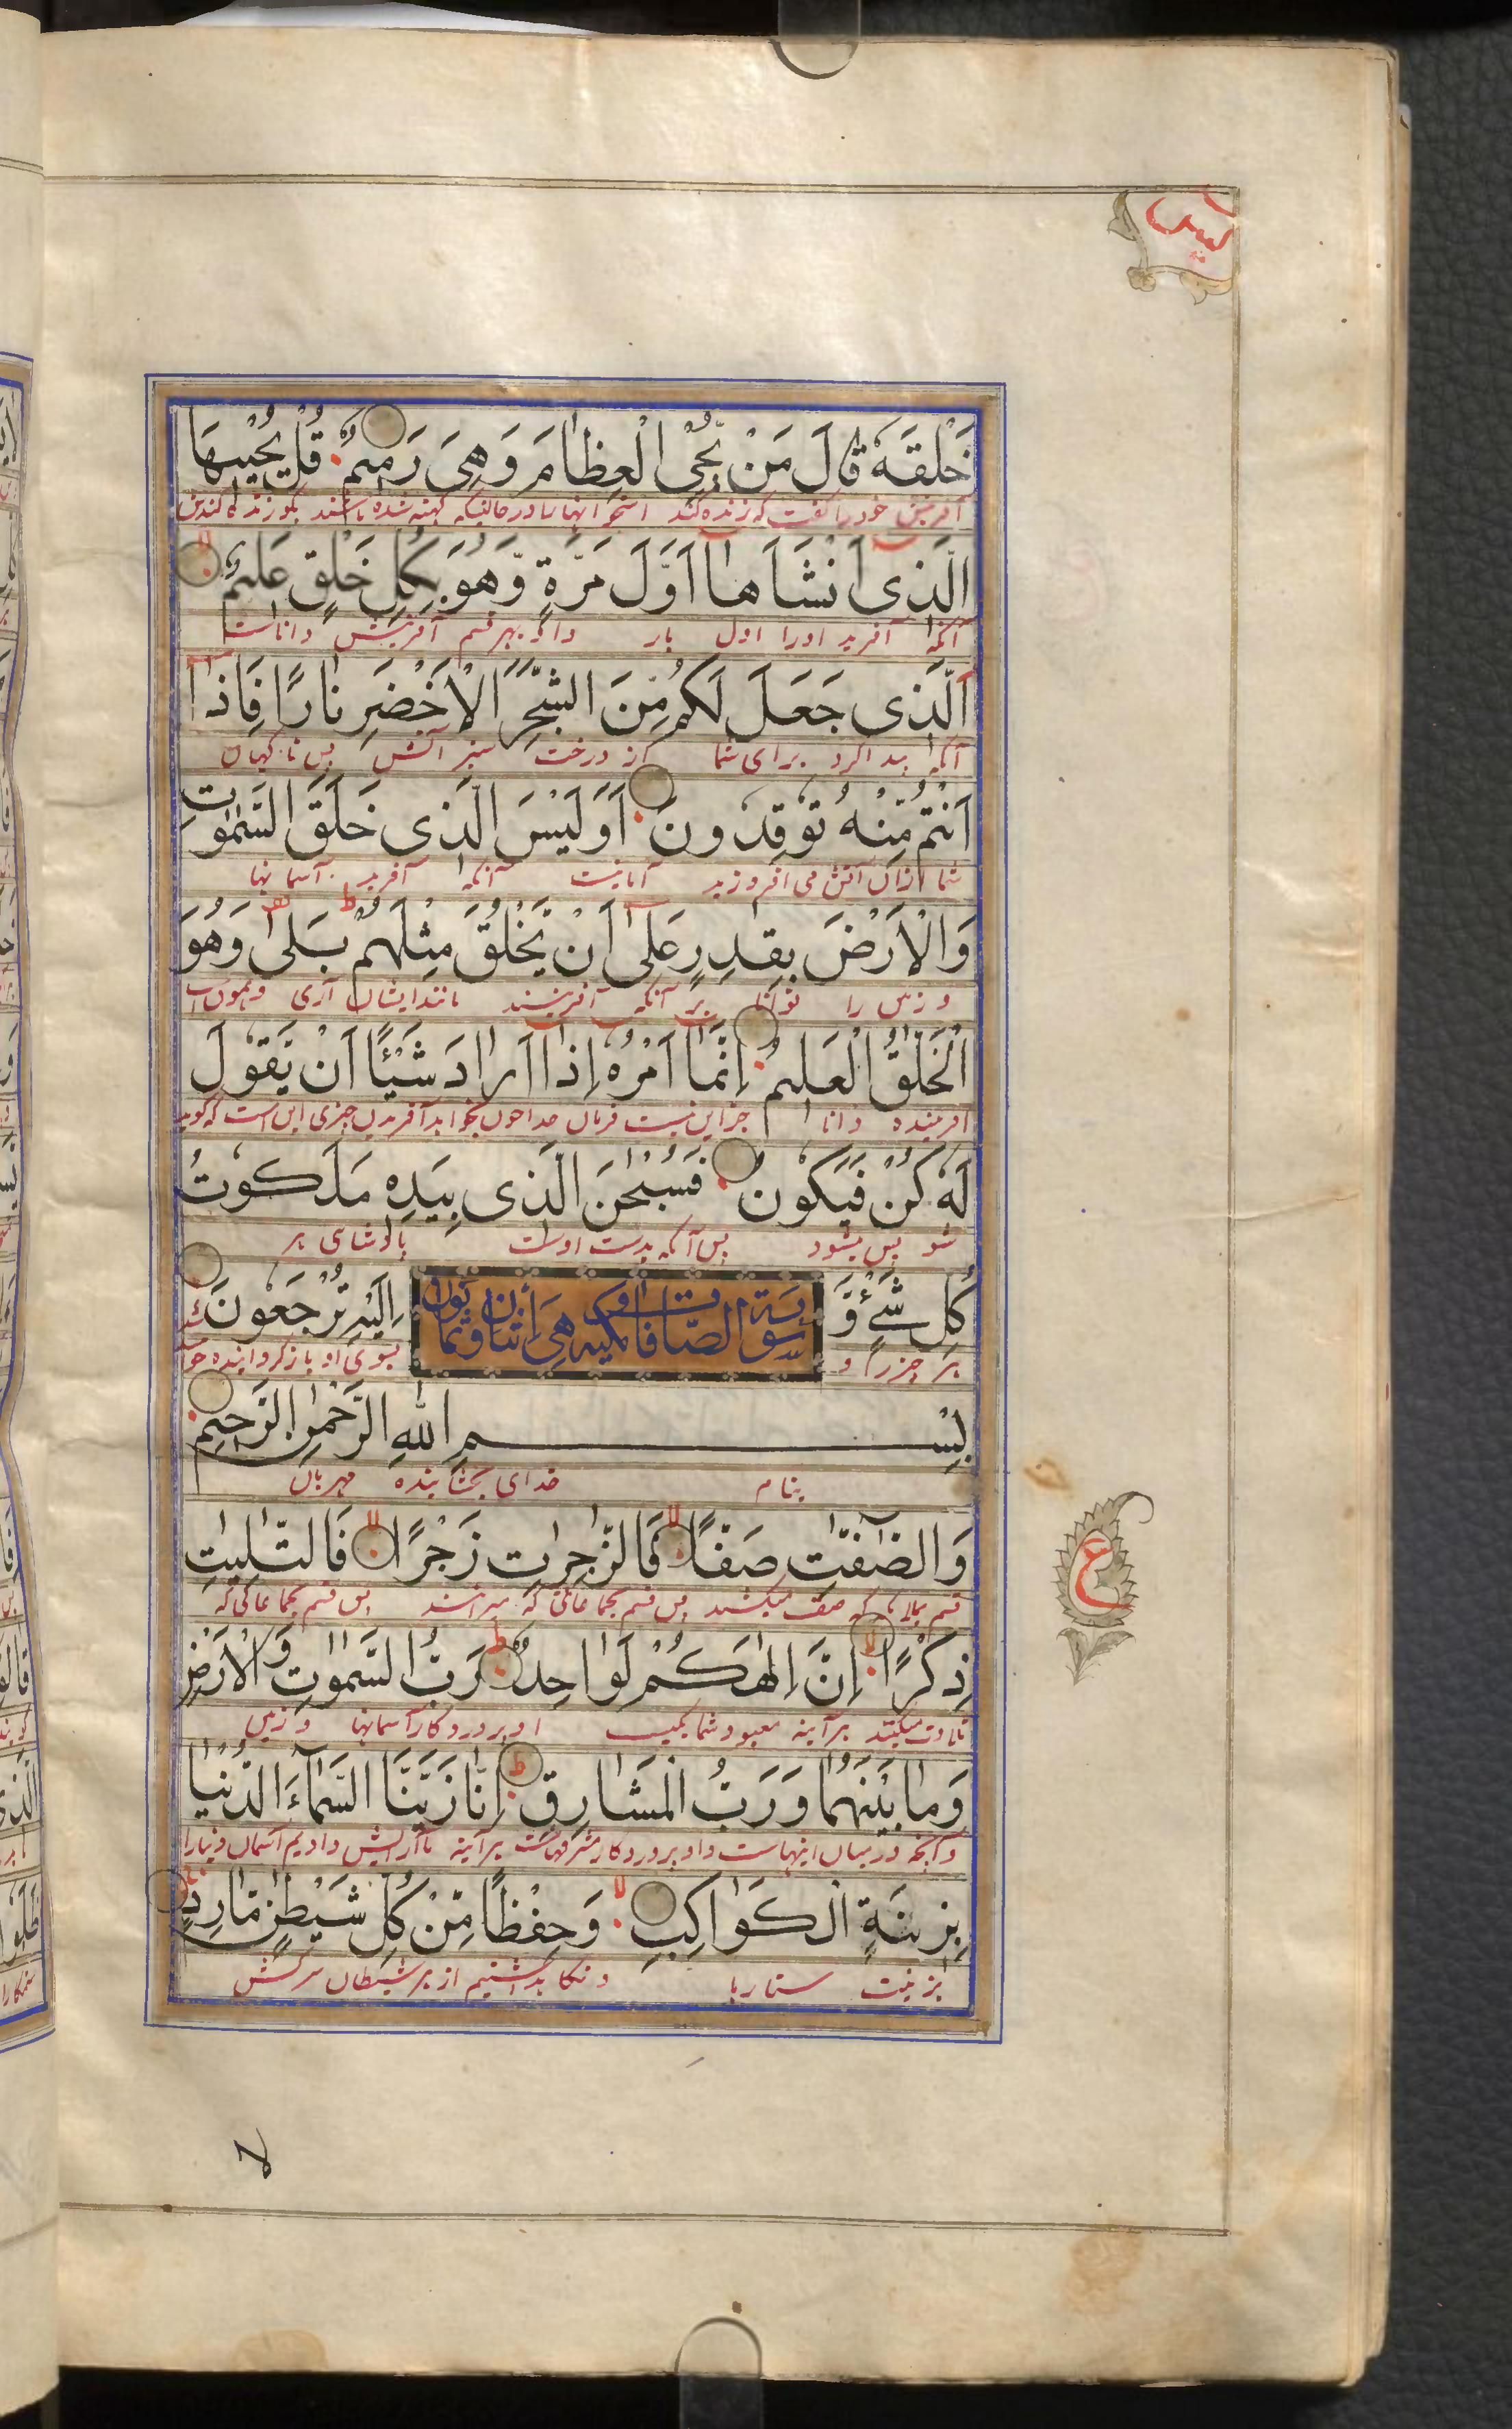 يس
خَلْقَهُ قَالَ مَنْ يُحْيِ الْعِظَامَ وَهِيَ رَمِيمٌ قُلْ يُحْيِيهَا
آفرینش خود را گفت که زنده کند استخوانها را در حالیکه کهنه شده باشند بگو زنده کندش
الَّذِی اَنْشَاَهَا اَوَّلَ مَرَّةٍ وَّهُوَ بِكُلِّ خَلْقٍ عَلِيمٌ
آنکه آفرید اورا اول بار واو بهر قسم آفرینش داناست
اَلَّذِی جَعَلَ لَكُمْ مِّنَ الشَّجَرِ الْاَخْضَرِ نَارًا فَاِذَا
آنکه پیدا کرد برای شما از درخت سبز آتش پس ناگهان
اَنْتُمْ مِّنْهُ تُوقِدُونَ اَوَلَيْسَ الَّذِی خَلَقَ السَّمٰوٰتِ
شما ازان آتش می افروزید آیا نیست آنکه آفرید آسمانها
وَالْاَرْضَ بِقٰدِرٍ عَلٰی اَنْ يَّخْلُقَ مِثْلَهُمْ بَلٰی وَهُوَ
و زمین را توانا بر آنکه آفریند مانند ایشان آری وهمون
الْخَلّٰقُ الْعَلِيمُ اِنَّمَا اَمْرُهُ اِذَا اَرَادَ شَيْئًا اَنْ يَّقُولَ
آفریننده دانا جز این نیست فرمان خدا چون بخواهد آفریدن چیزی این است که گوید
لَهُ كُنْ فَيَكُونُ فَسُبْحٰنَ الَّذِی بِيَدِهِ مَلَكُوتُ
شو پس بشود پس آنکه بدست اوست پادشاهی هر
كُلِّ شَیْءٍ وَّ اِلَيْهِ تُرْجَعُونَ
سورة الصافات مکیه هی
هر چیز را و بسوی او بازگردانیده
بِسْمِ اللهِ الرَّحْمٰنِ الرَّحِيمِ
بنام خدای بخشاینده مهربان
وَالصّٰٓفّٰتِ صَفًّا فَالزّٰجِرٰتِ زَجْرًا فَالتّٰلِيٰتِ
قسم که صف میکشند پس قسم بجماعاتی که میرانند پس قسم بجماعاتی که
ذِكْرًا اِنَّ اِلٰهَكُمْ لَوَاحِدٌ رَبُّ السَّمٰوٰتِ وَالْاَرْضِ
تلاوت میکنند هر آینه معبود شما یکیست او پروردگار آسمانها و زمین
وَمَا بَيْنَهُمَا وَرَبُّ الْمَشَارِقِ اِنَّا زَيَّنَّا السَّمَآءَ الدُّنْيَا
وآنچه درمیان اینهاست واو پروردگار مشرقهاست هر آینه ما آرایش دادیم آسمان دنیا را
بِزِينَةٍ الْكَوَاكِبِ وَحِفْظًا مِّنْ كُلِّ شَيْطٰنٍ مَّارِدٍ
بزینت ستارها ونگاه داشتیم از هر شیطان سرکش
ع
لا